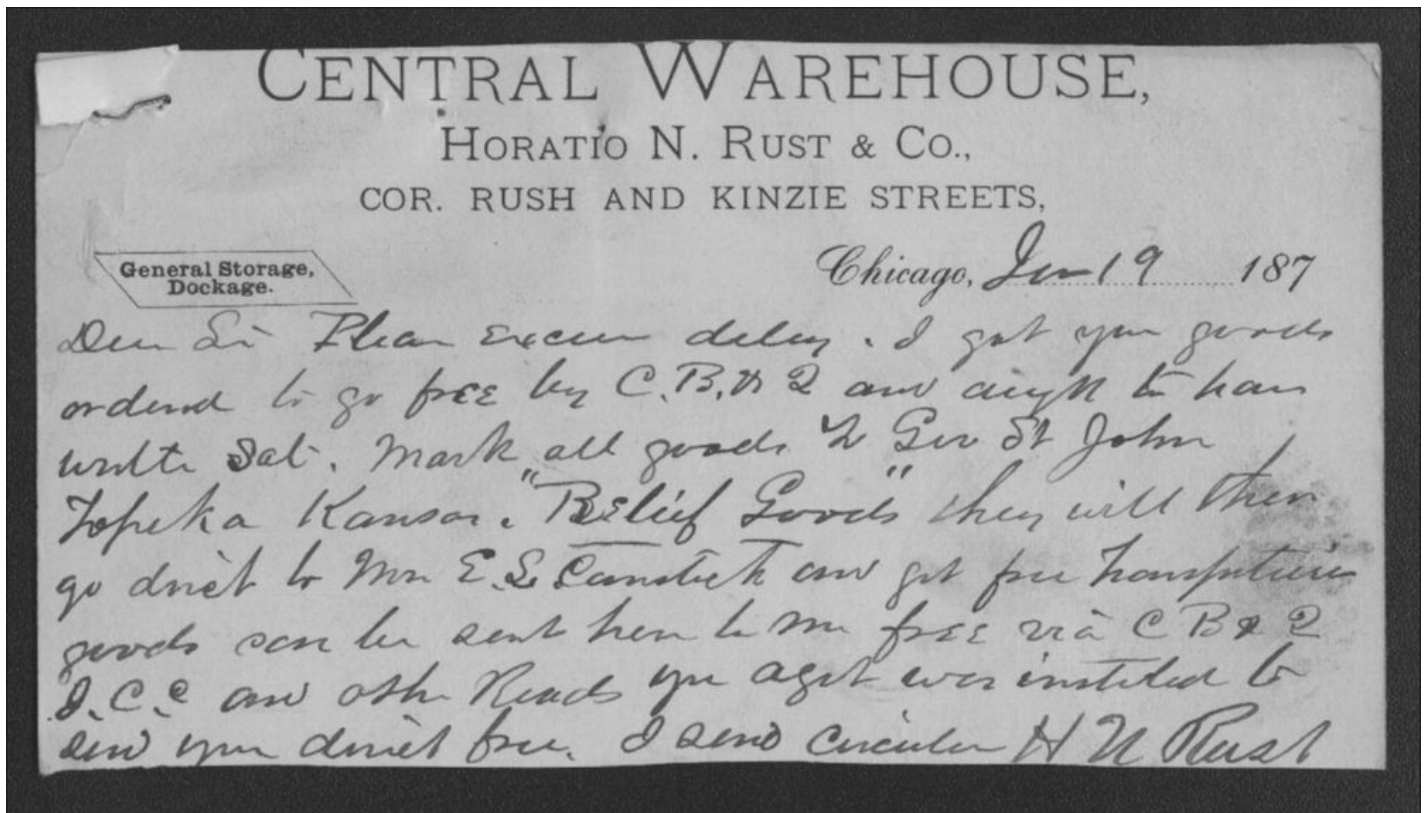 CENTRAL WAREHOUSE,
HORATIO N. RUST & CO.,
COR. RUSH AND KINZIE STREETS,
General Storage,
Dockage.
Chicago, Jan 19 187
Dear Sir Please excuse delay. I got your goods
ordered to go free by C. B. & Q and ought to have
written Sat. Mark all goods to Gov St John
Topeka Kansas. "Relief Goods" they will then
go direct to Mrs E. L. Comstock and get free transportation
goods can be sent here to me free via C B & Q
I. C. C and other Roads your agent was instructed to
send your direct free. I send circular H N Rust